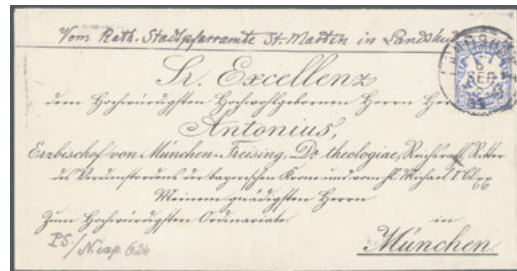 Vom Kath. Stadtpfarramte St. Martin in Landshut
Sr. Excellenz
dem Hochwürdigsten Hochwohlgebornen Herrn Herrn
Antonius,
Erzbischof von München-Freising, Dr. theologiae, Reichsrath, Ritter
des Verdienstordens der bayerischen Krone und vom hl. Michael I. Cl.
Meinem gnädigsten Herrn
Zum Hochwürdigsten Ordinariate in
München
PS/N. exp. 624
5
SEP